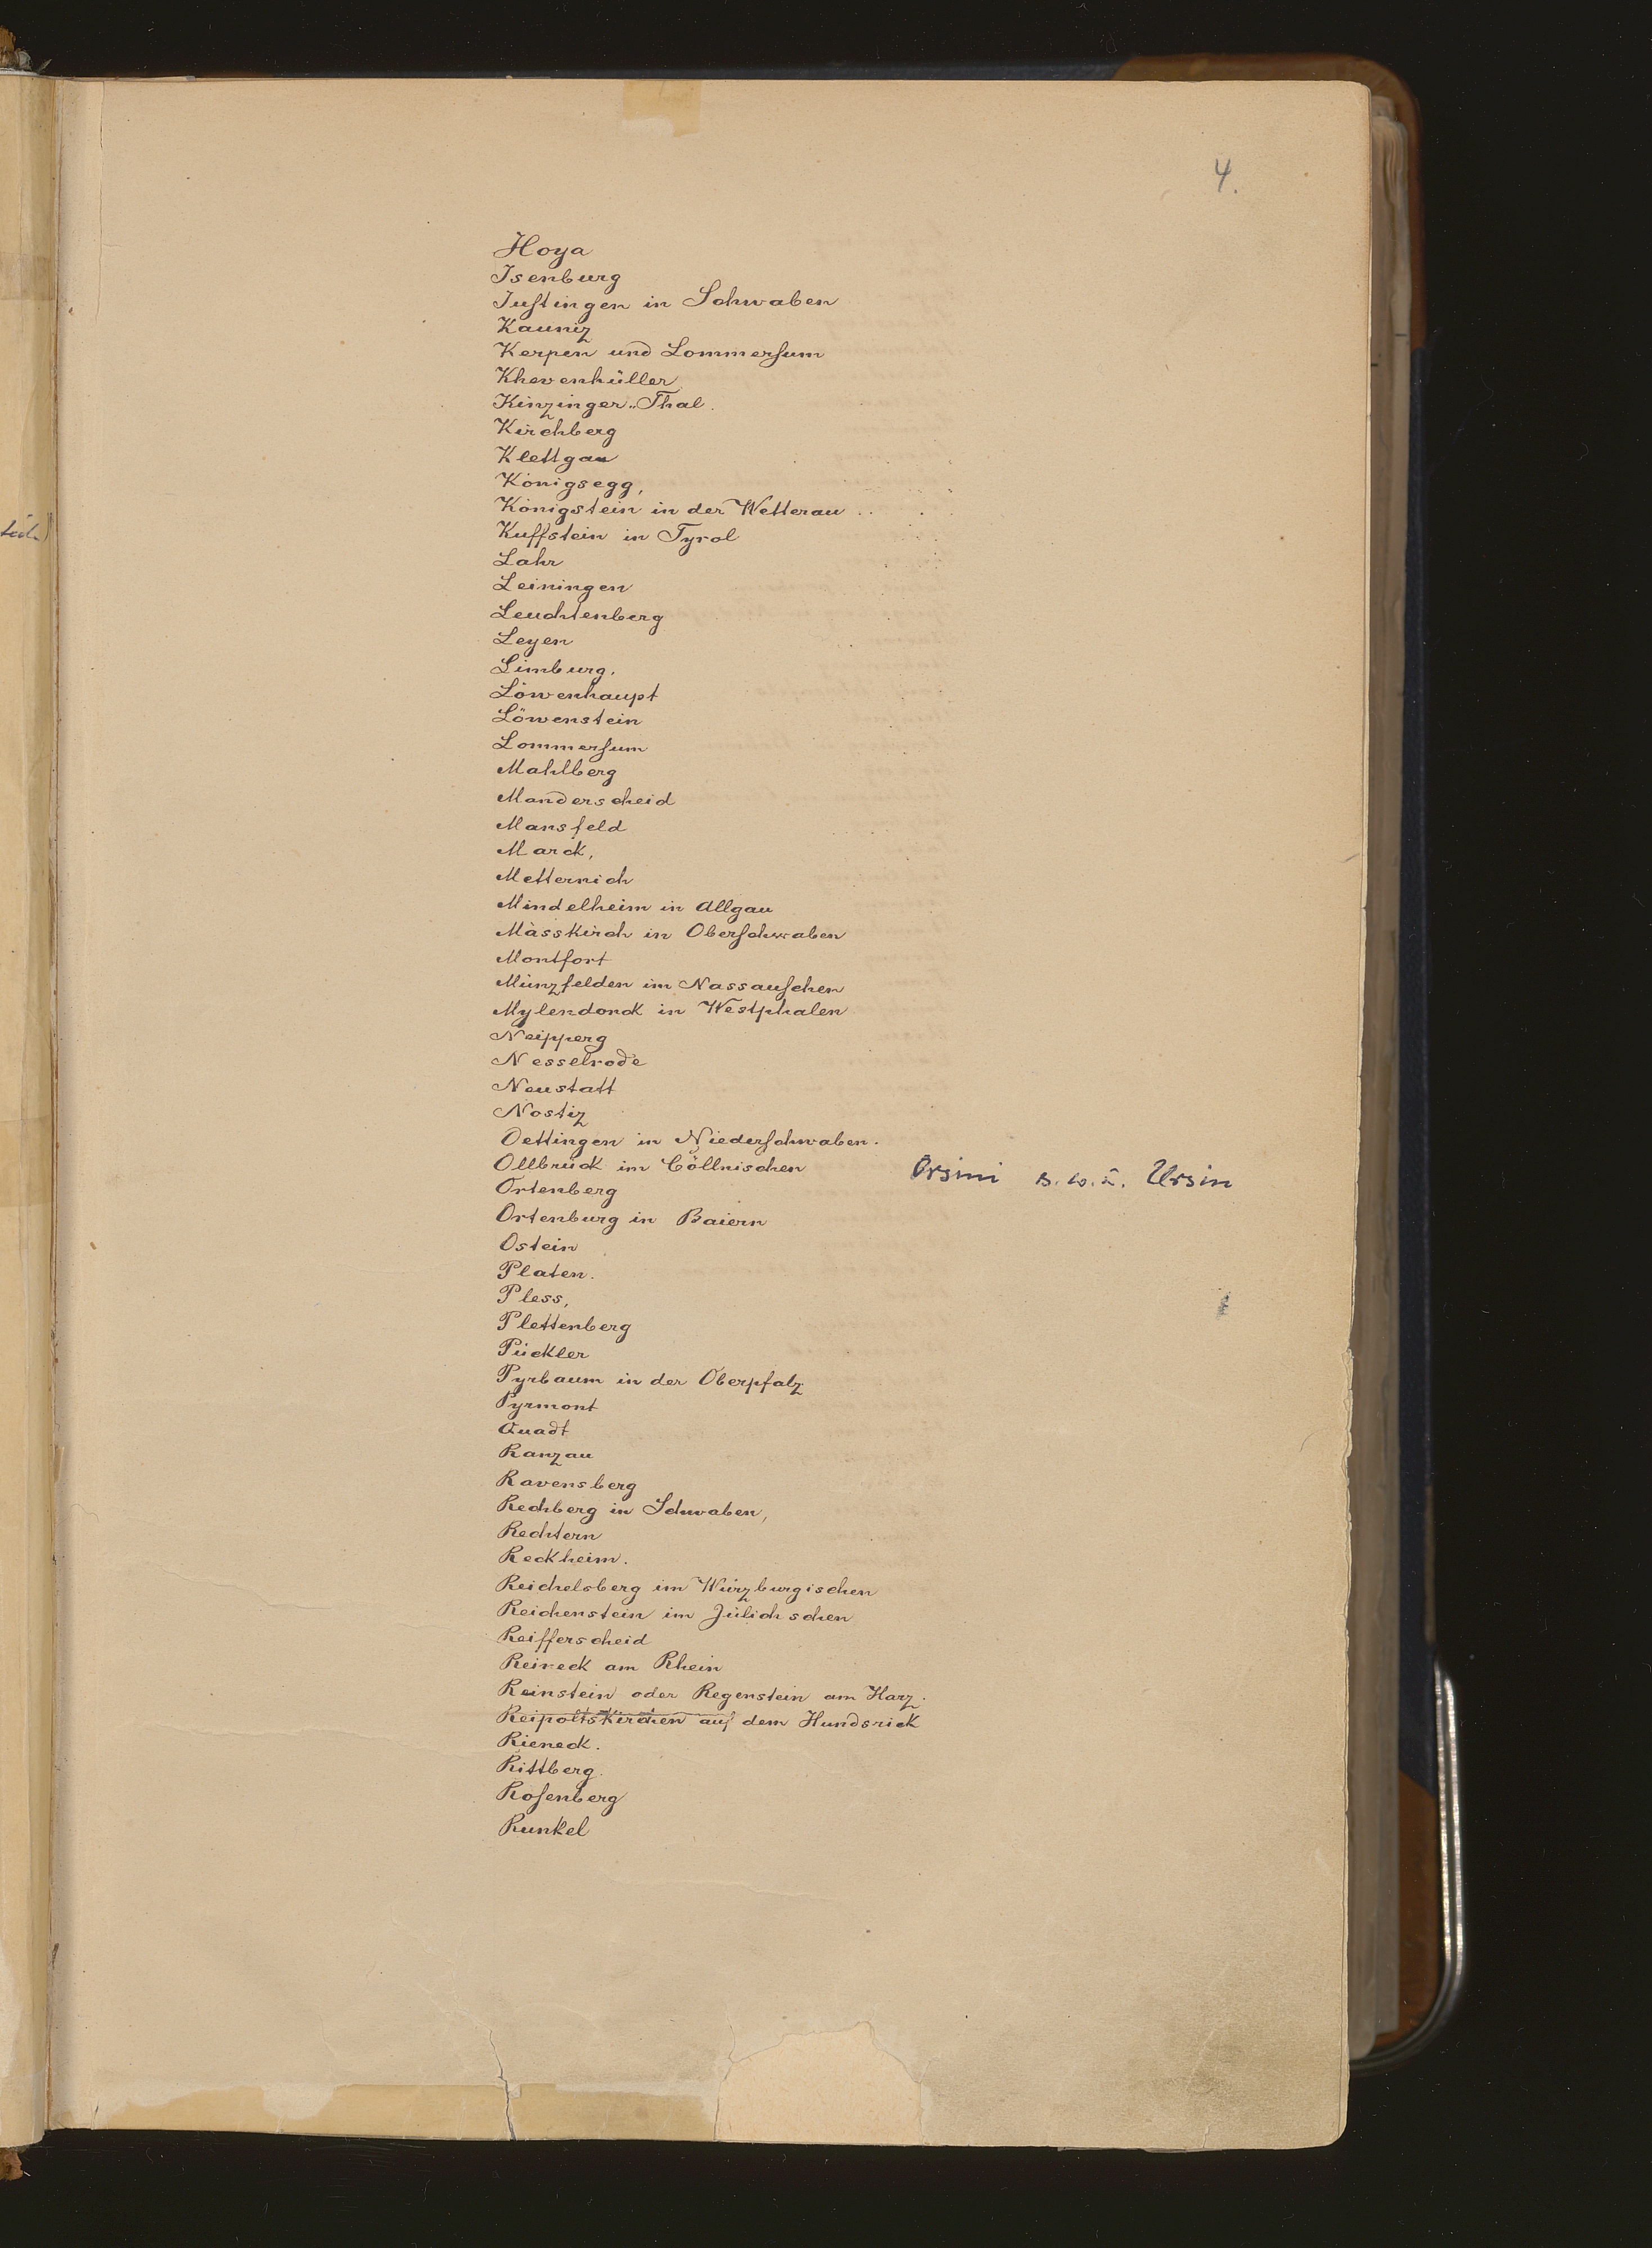 4.
Hoya
Isenburg
Juſtingen in Schwaben
Kauniz
Kerpen und Lommerſum
Khevenhüller
Kinzinger-Thal.
Kirchberg
Klettgau
Königsegg,
Königstein in der Wetterau
Kuffstein in Tyrol
Lahr
Leiningen
Leuchtenberg
Leyen
Limburg.
Löwenhaupt
Löwenstein
Lommerſum
Mahlberg
Manderscheid
Mansfeld
Marck,
Metternich
Mindelheim in Allgau
Mässkirch in Oberſchwaben
Montfort
Münzfelden im Nassauſchen
Mylendonck in Westphalen
Neipperg
Nesselrode
Neustatt
Nostiz
Oettingen in Niederſchwaben.
Ollbrück im Cöllnischen
Orsini s. w. u. Ursin
Ortenberg
Ortenburg in Baiern
Ostein
Platen.
Pless,
Plettenberg
Pückler
Pyrbaum in der Oberpfalz
Pyrmont
Quadt
Ranzau
Ravensberg
Rechberg in Schwaben,
Rechtern
Reckheim.
Reichelsberg im Würzburgischen
Reichenstein im Jülichschen
Reifferscheid
Reineck am Rhein
Reinstein oder Regenstein am Harz.
Reipoltskirchen auf dem Hundsrick
Rieneck.
Rittberg.
Roſenberg
Runkel